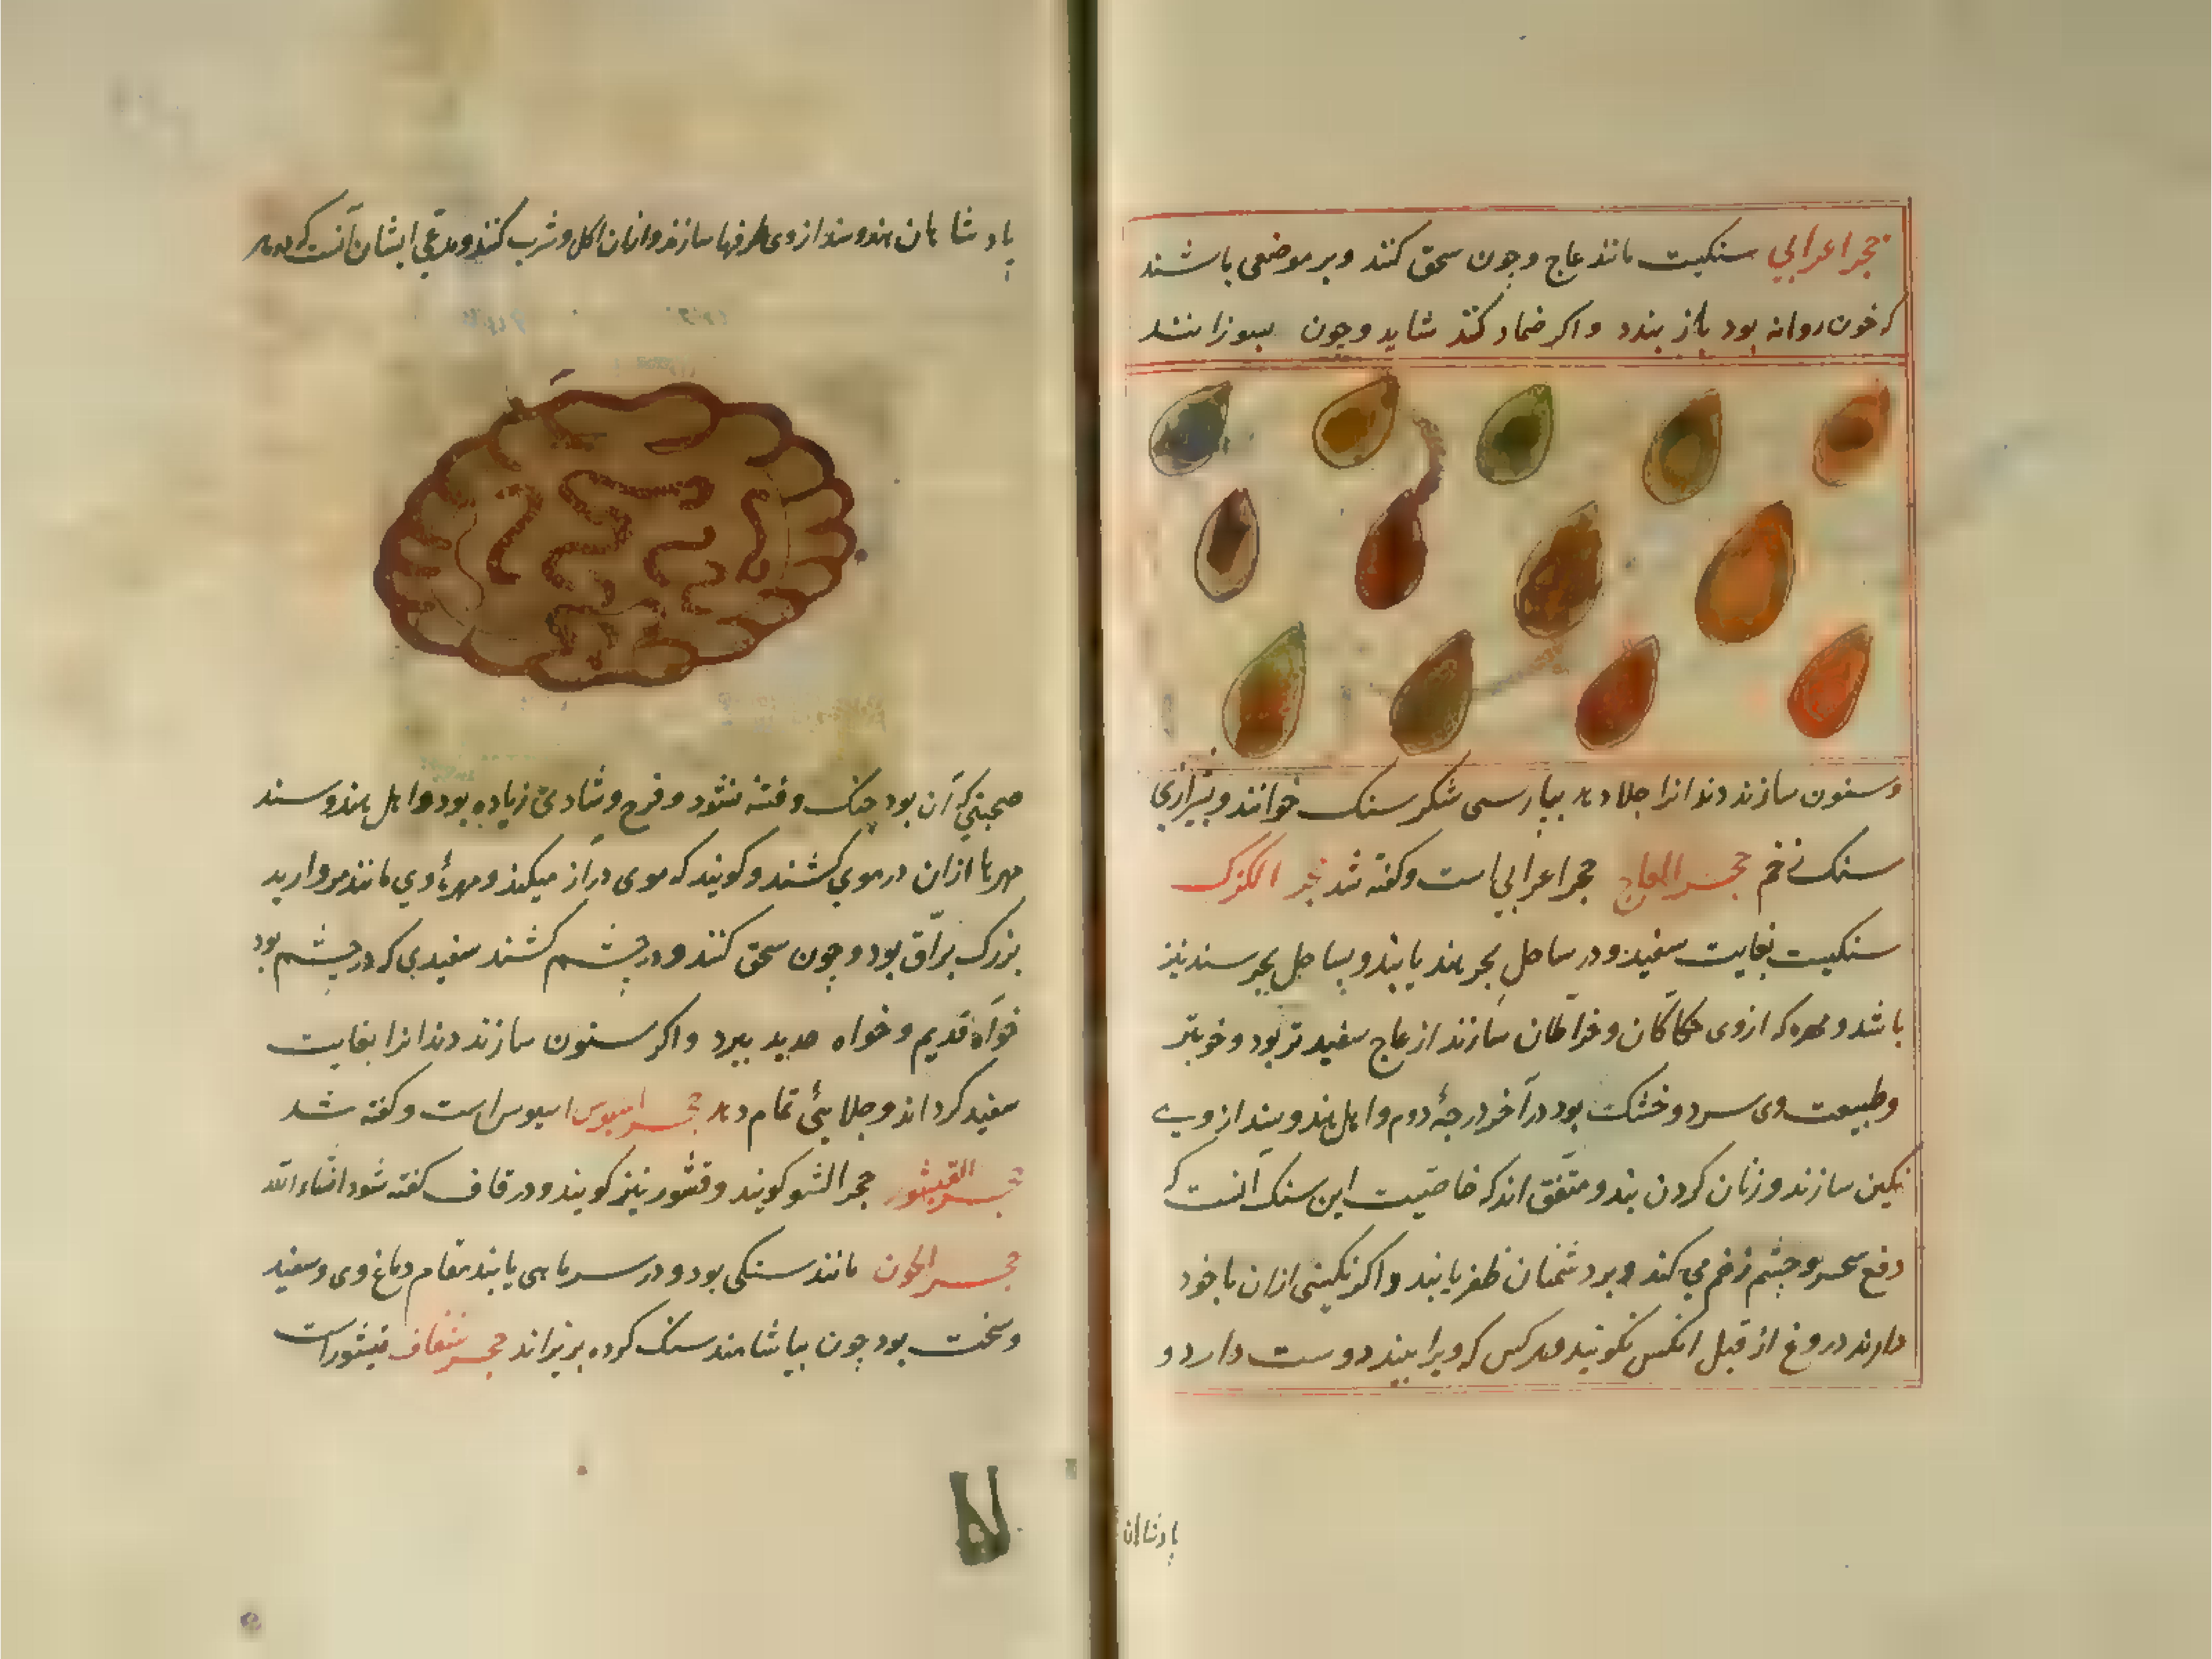 حجر اعرابي سنکیست مانند عاج وچون سحق کنند وبر موضعی باشند
که خون روانه بود باز بندد واکر ضماد کنند شاید وچون بسوزانند
وسنون سازند دندانرا جلا دهد بپارسی شکر سنک خوانند وبشیرازی
سنک زخم حجر العاج حجر اعرابي است وکفته شد حجر الکزک
سنکیست بغایت سفید ودر ساحل بحر هند یابند وبساحل بحر سند نیز
باشد ومهره که ازوی حکاکان وخراطان سازند از عاج سفیدتر بود وخوبتر
وطبیعت وی سرد وخشک بود در آخر درجهٔ دوم واهل هند وسند از وی
نکین سازند وزنان کردن بند ومتفق اند که خاصیت این سنک آنست که
دفع سحر وچشم زخم می کند وبر دشمنان ظفر یابند واکر نکینی ازان با خود
دارند دروغ از قبل انکس نکویند وهرکس که ویرا بیند دوست دارد و
پادشاهان
پادشاهان هند وسند ازوی ظرفها سازند وازان اکل وشرب کنند ومدعی ایشان آنست که در هر
صحبتی که آن بود جنک وفتنه نشود وفرح وشادی زیاده بود واهل هند وسند
مهرها ازان در موی کشند وکویند که موی دراز میکند ومهرهٔ وي مانند مروارید
بزرک براق بود وچون سحق کنند ودر چشم کشند سفیدی که در چشم بود
خواه قدیم وخواه جدید ببرد واکر سنون سازند دندانرا بغایت
سفید کرداند وجلایی تمام دهد حجر اسیوس اسیوس است وکفته شد
حجر القیشور حجر الشو کویند وقشور نیز کویند ودر قاف کفته شود انشاء الله
حجر الحوت مانند سنکی بود ودر سر ماهی یابند بمقام دماغ وی وسفید
وسخت بود چون بیاشامند سنک کرده بریزاند حجر شفاف قیشور است